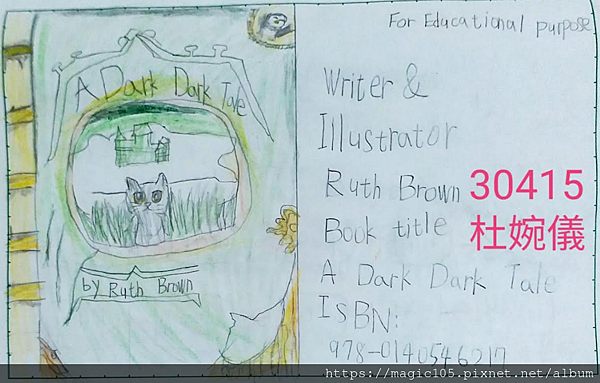 A Dark Dark Tale
by Ruth Brown
For Educational purpose
Writer &
Illustrator
Ruth Brown
30415
Book title
杜婉儀
A Dark Dark Tale
ISBN:
978-0140546217
https://magic105.pixnet.net/album